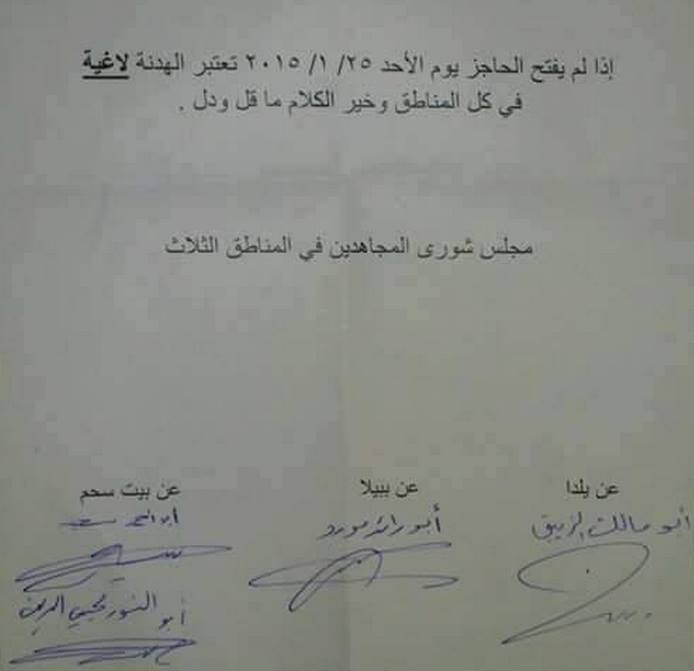 إذا لم يفتح الحاجز يوم الأحد ٢٥/ ١/ ٢٠١٥ تعتبر الهدنة لاغية
في كل المناطق وخير الكلام ما قل ودل .
مجلس شورى المجاهدين في المناطق الثلاث
عن يلدا
أبو مالك
عن ببيلا
أبو رائد مورد
عن بيت سحم
أبو النور محيي الدين